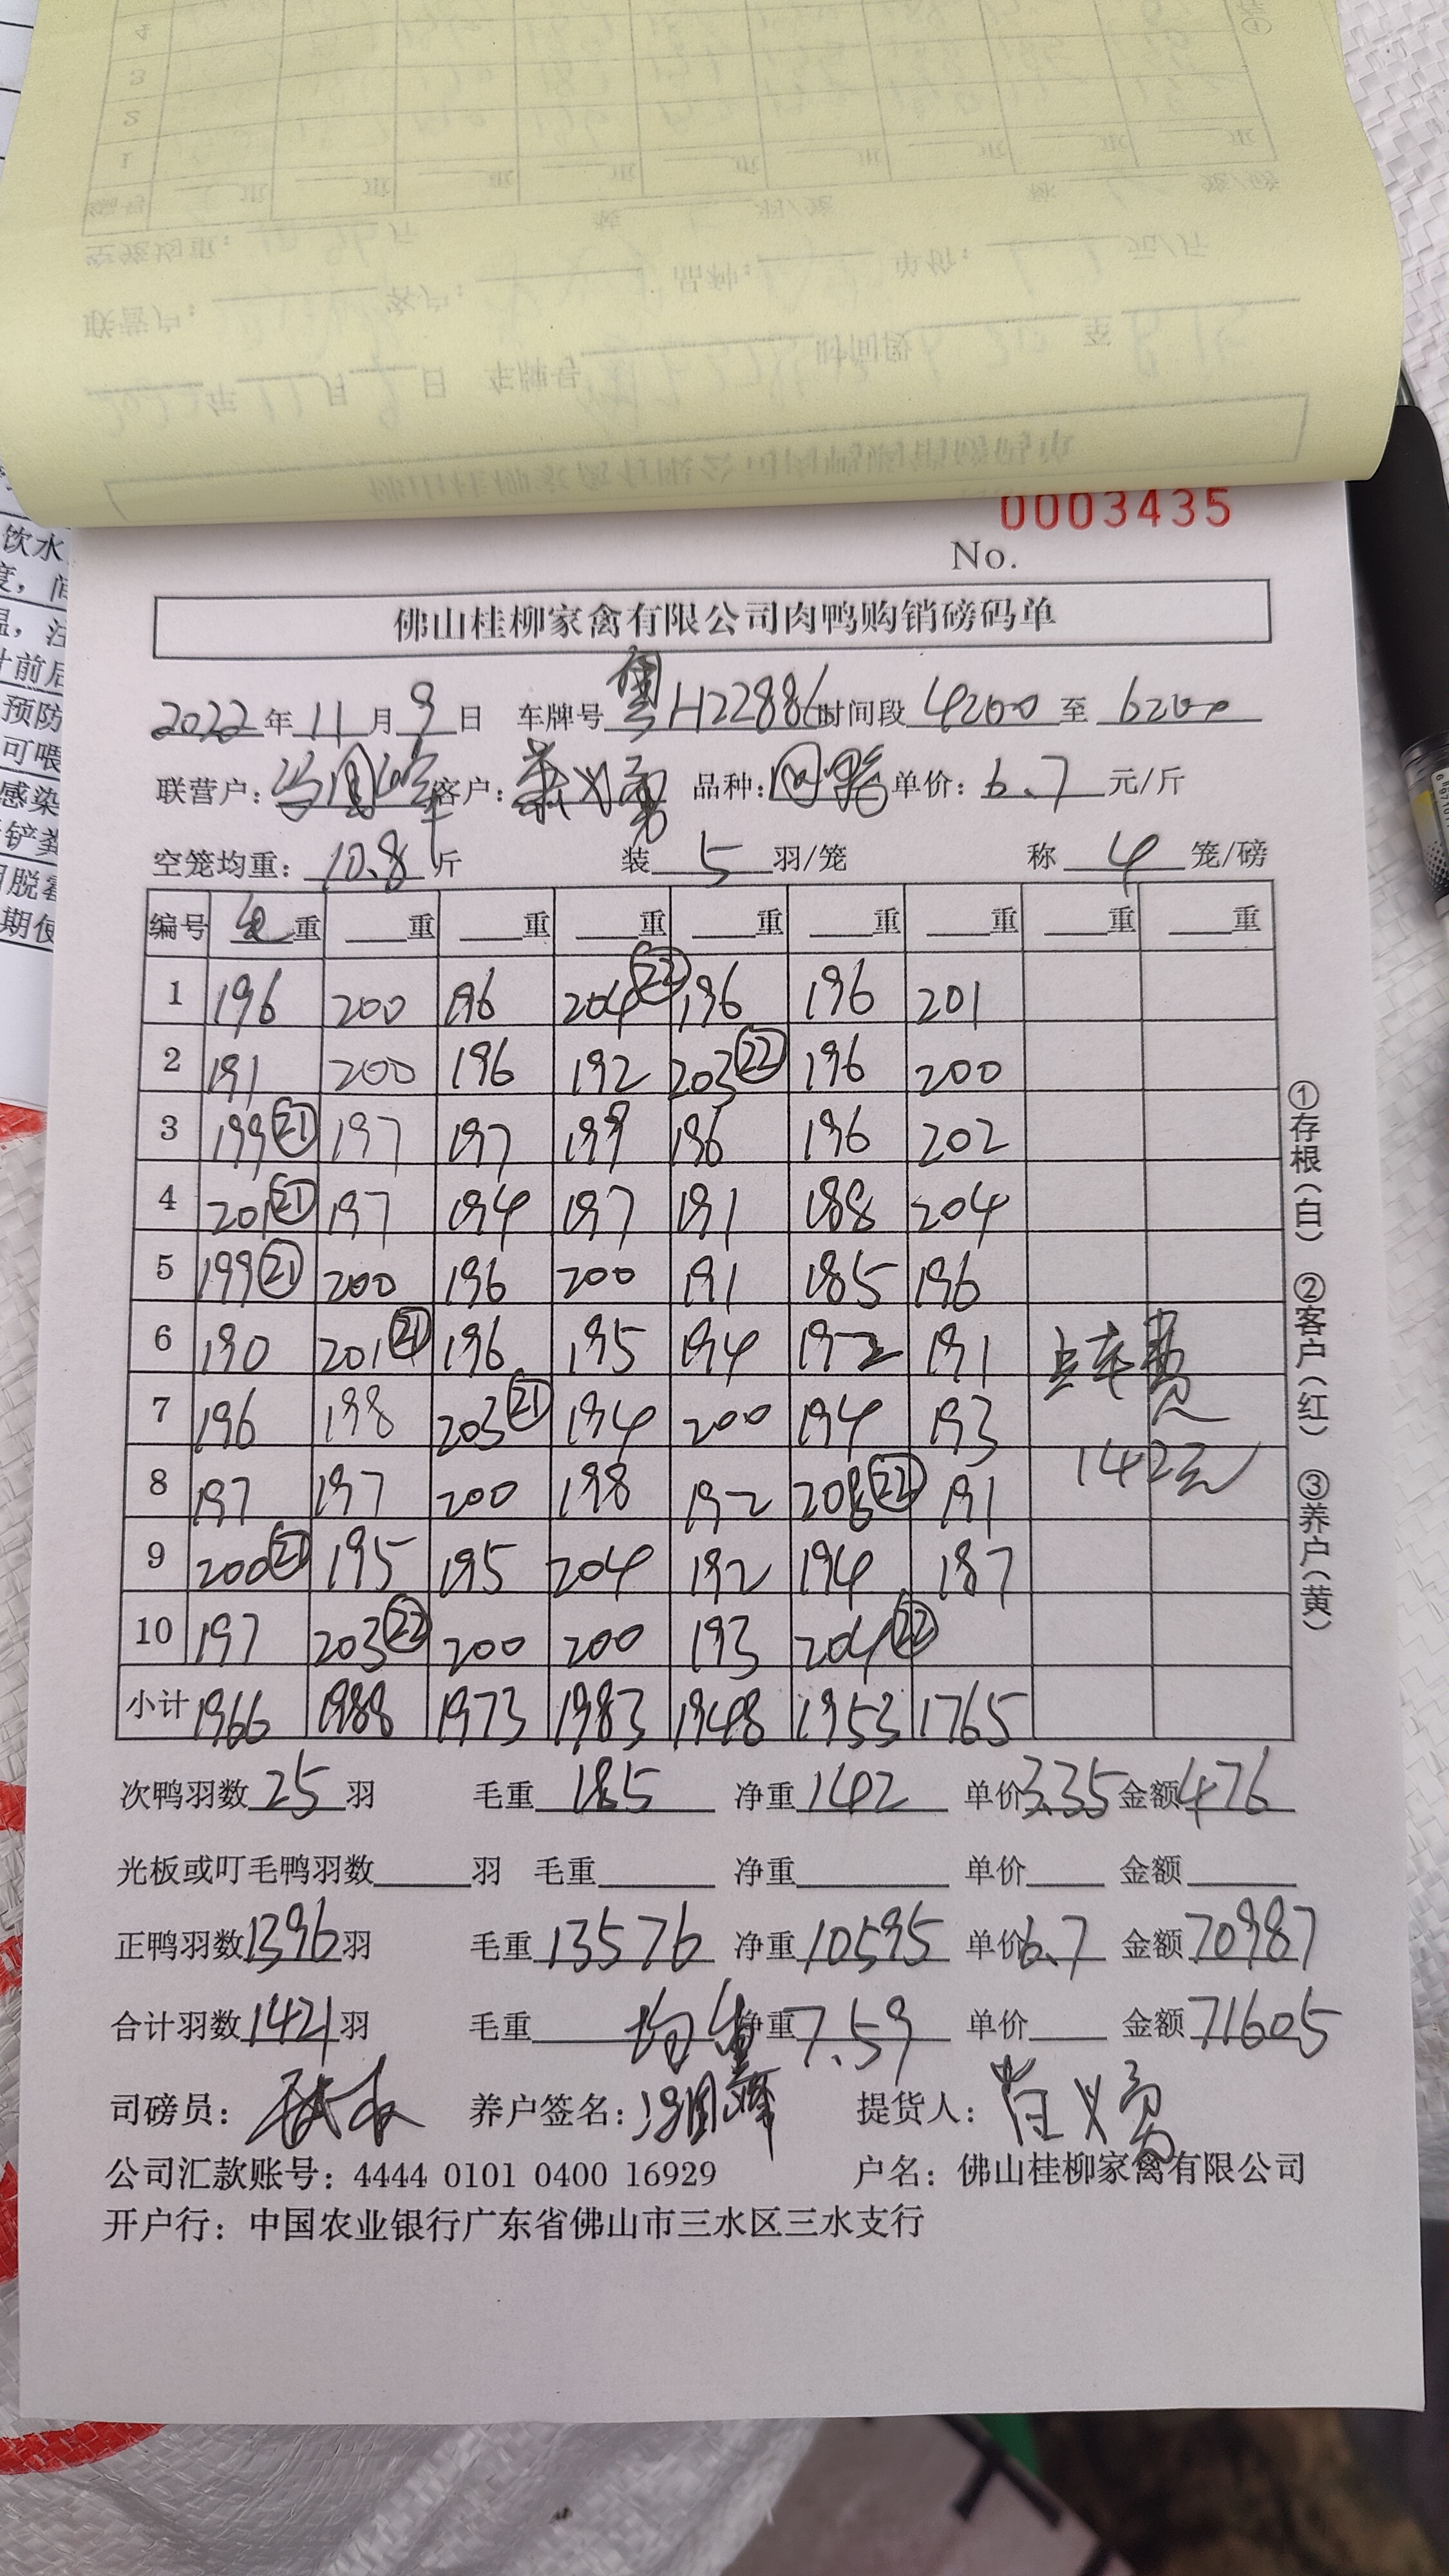 0003435
No.
佛山桂柳家禽有限公司肉鸭购销磅码单
2022年11月9日 车牌号粤H22886时间段4200至6200
联营户： 客户： 品种： 单价：6.7元/斤
空笼均重：10.8斤 装5羽/笼 称4笼/磅
编号 毛重 重 重 重 重 重 重 重 重
1 196 200 196 204㉒ 196 196 201
2 191 200 196 192 203㉒ 196 200
3 199㉑ 197 197 199 196 196 202
4 201㉑ 197 194 197 191 188 204
5 199㉑ 200 196 200 191 185 196
6 190 201㉑ 196 195 194 192 191 点车费
7 196 198 203㉑ 194 200 194 193
8 197 197 200 198 192 208㉒ 191 142元
9 200㉑ 195 195 204 192 194 187
10 197 203㉒ 200 200 193 204㉒
小计 1966 1988 1973 1983 1948 1953 1765
①存根（白） ②客户（红） ③养户（黄）
次鸭羽数25羽 毛重185 净重142 单价3.35 金额476
光板或叮毛鸭羽数 羽 毛重 净重 单价 金额
正鸭羽数1396羽 毛重13576 净重10595 单价6.7 金额70987
合计羽数1421羽 毛重 均重 净重7.59 单价 金额71605
司磅员： 养户签名： 提货人：
公司汇款账号：4444 0101 0400 16929 户名：佛山桂柳家禽有限公司
开户行：中国农业银行广东省佛山市三水区三水支行
饮水
度，间
温，注
计前后
预防
可喂
感染
铲粪
用脱霉
期使